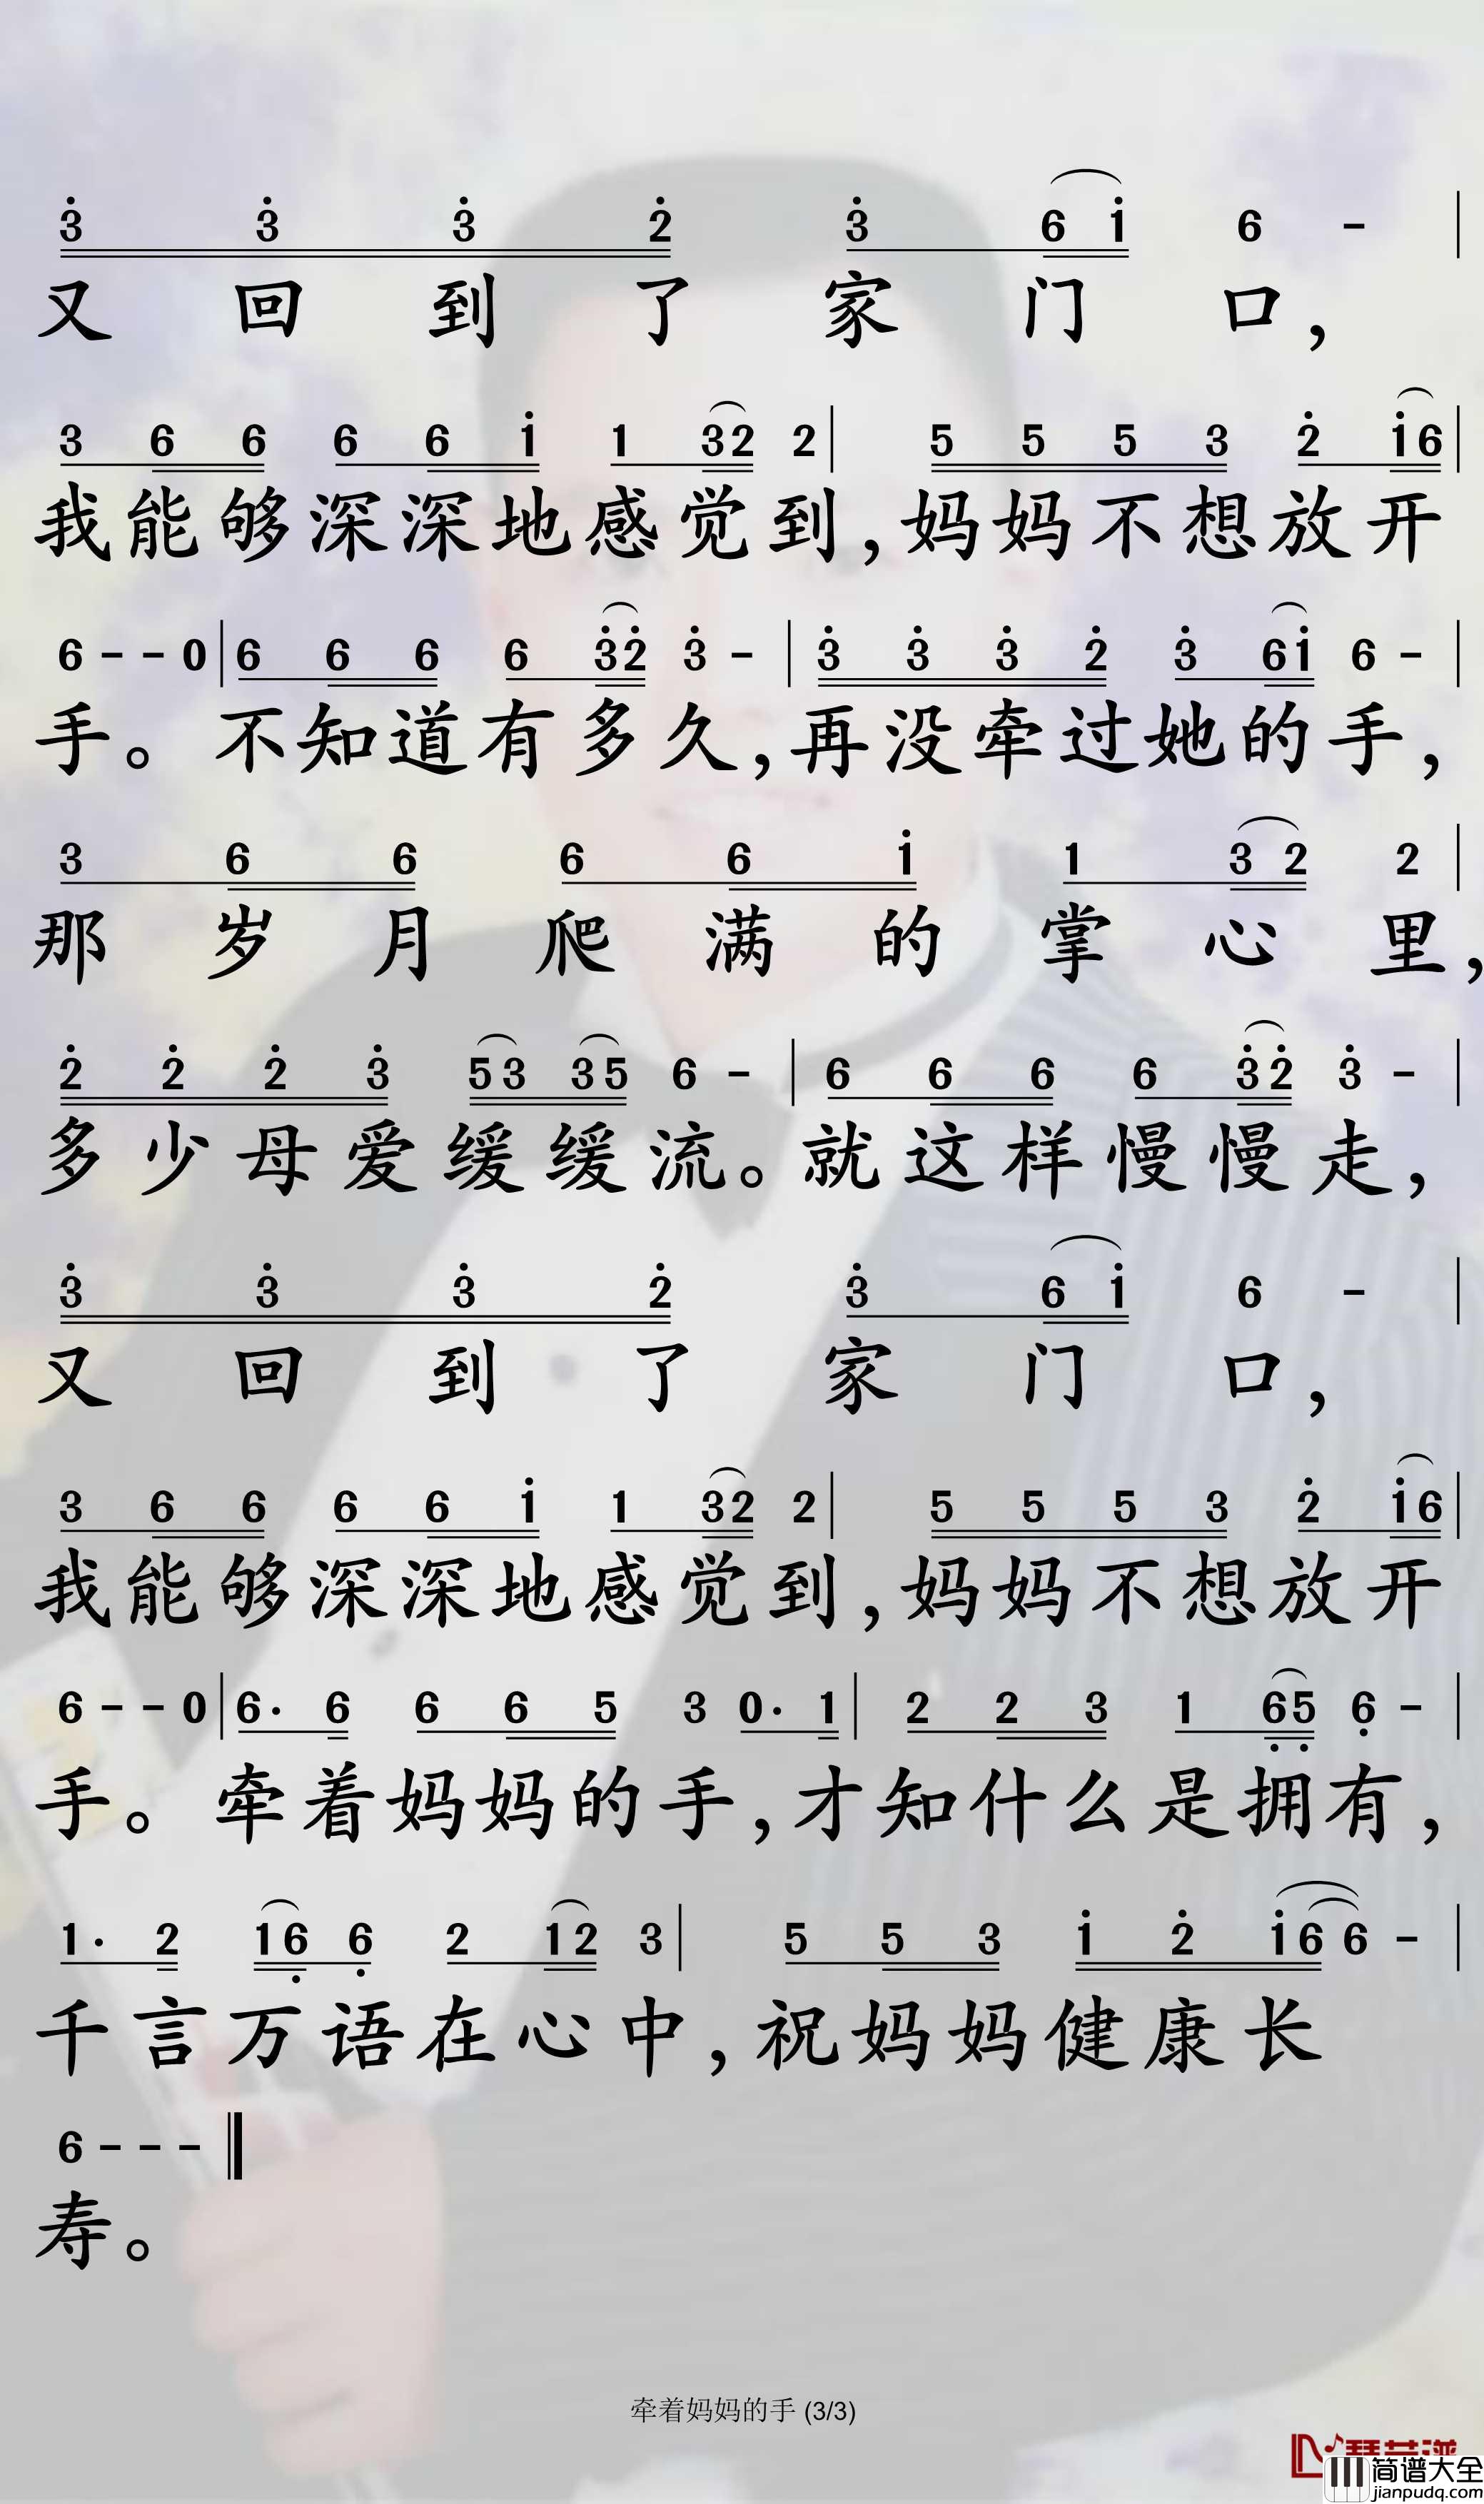 3 3 3 2 3 6 1 6 - |
又回到了家门口，
3 6 6 6 6 1 1 3 2 2 | 5 5 5 3 2 1 6 |
我能够深深地感觉到，妈妈不想放开
6 - - 0 | 6 6 6 6 3 2 3 - | 3 3 3 2 3 6 1 6 - |
手。不知道有多久，再没牵过她的手，
3 6 6 6 6 1 1 3 2 2 |
那岁月爬满的掌心里，
2 2 2 3 5 3 3 5 6 - | 6 6 6 6 3 2 3 - |
多少母爱缓缓流。就这样慢慢走，
3 3 3 2 3 6 1 6 - |
又回到了家门口，
3 6 6 6 6 1 1 3 2 2 | 5 5 5 3 2 1 6 |
我能够深深地感觉到，妈妈不想放开
6 - - 0 | 6· 6 6 6 5 3 0· 1 | 2 2 3 1 6 5 6 - |
手。牵着妈妈的手，才知什么是拥有，
1· 2 1 6 6 2 1 2 3 | 5 5 3 1 2 1 6 6 - |
千言万语在心中，祝妈妈健康长
6 - - - ‖
寿。
牵着妈妈的手 (3/3)
简谱大全
jianpudq.com